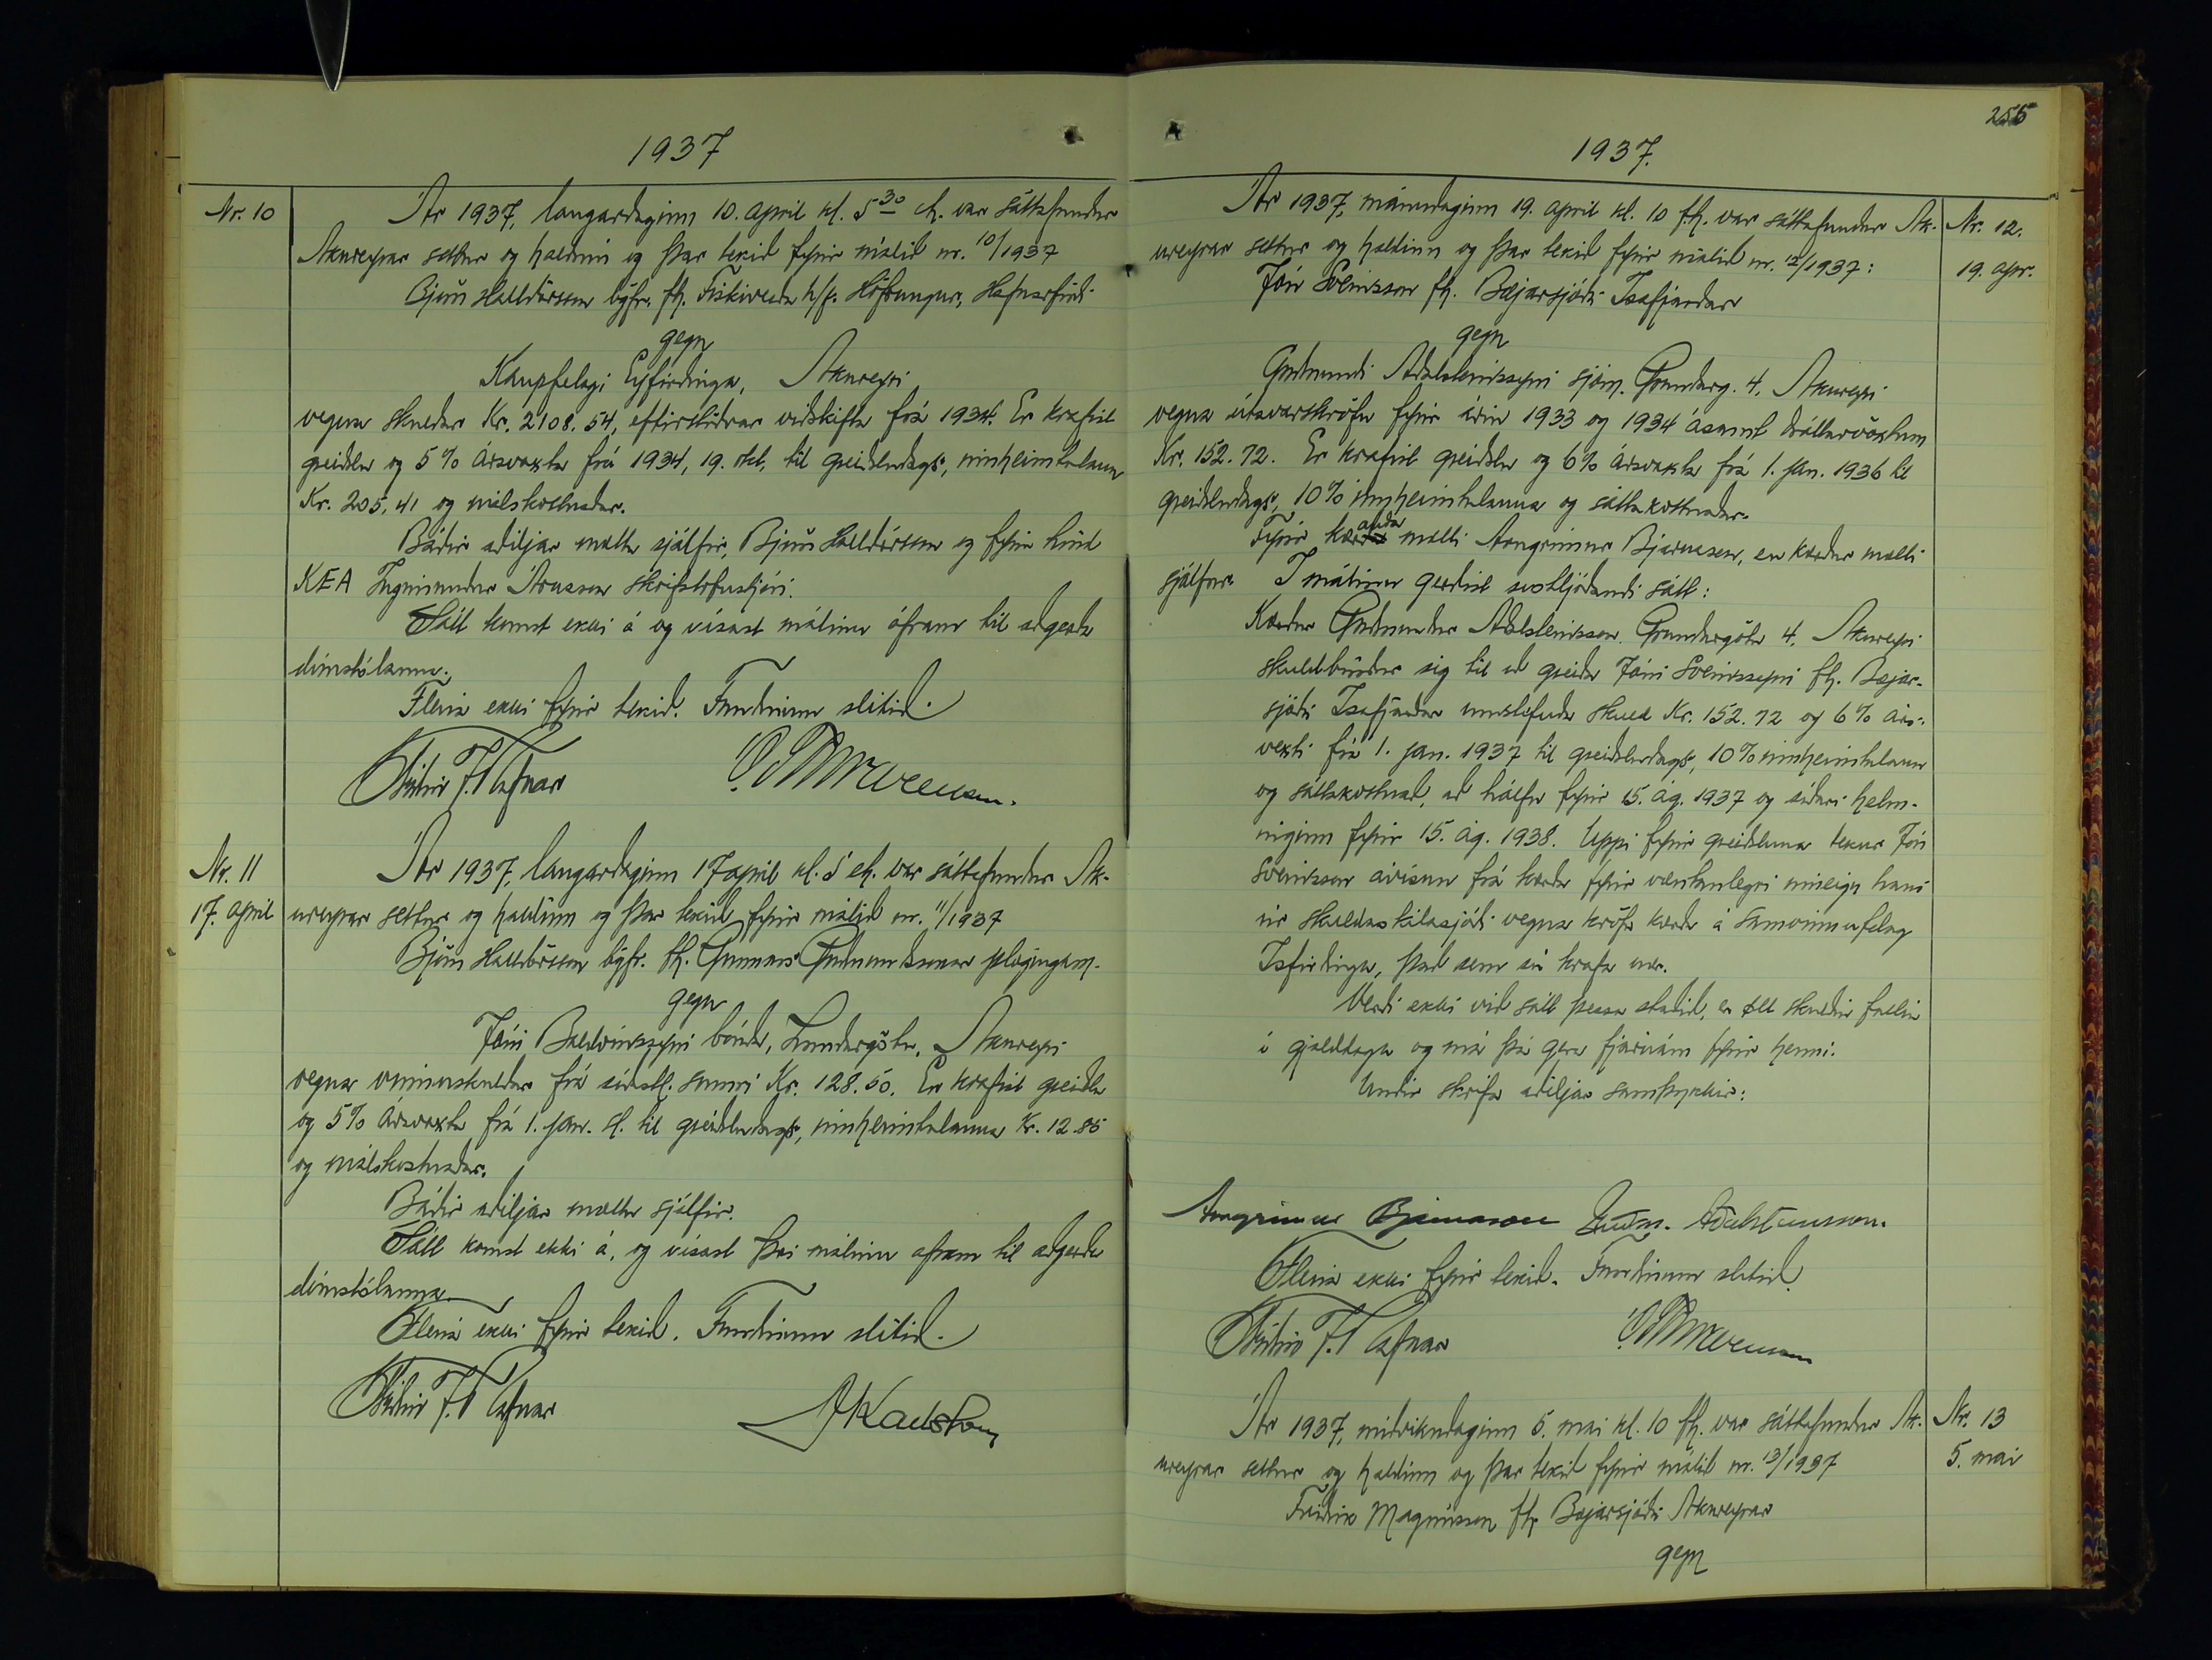 1937
Nr. 10
Ár 1937, laugardaginn 10. apríl kl. 5 30 eh. var sáttafundur
Akureyrar settur og haldinn og þar tekið fyrir málið nr. 10/1937
Björn Halldórsson lögfr. fh. Fiskiveiða h/f. Höfrungur, Hafnarfirði
gegn
Kaupfélagi Eyfirðinga, Akureyri
vegna skuldar Kr. 2108.54, eftirstöðvar viðskifta frá 1934. Er krafist
greiðslu og 5% ársvaxta frá 1934, 19. okt. til greiðsludags, innheimtulauna
Kr. 205,41 og málskostnaðar.
Báðir aðiljar mættu sjálfir, Björn Halldórsson og fyrir hönd
KEA Ingimundur Árnason skrifstofustjóri.
Sátt komst ekki á og vísast málinu áfram til aðgerða
dómstólanna.
Fleira ekki fyrir tekið. Fundinum slitið.
Nr. 11
17. apríl
Ár 1937, laugardaginn 17 apríl kl. 5 eh. var sáttafundur Ak-
ureyrar settur og haldinn og þar tekið fyrir málið nr. 11/1937
Björn Halldórsson lögfr. fh. Gunnars Guðmundssonar plægingam.
gegn
Jóni Baldvinssyni bónda, Lundargötu, Akureyri
vegna vinnuskuldar frá síðastl. sumri Kr. 128.50. Er krafist greiðslu
og 5% ársvaxta frá 1. jan. sl. til greiðsludags, innheimtulauna Kr. 12.85
og málskostnaðar.
Báðir aðiljar mættu sjálfir.
Sátt komst ekki á, og vísast því málinu áfram til aðgerða
dómstólanna.
Fleira ekki fyrir tekið. Fundinum slitið.
255
1937.
Nr. 12.
19. apr.
Ár 1937, mánudaginn 19. apríl kl. 10 f.h. var sáttafundur Ak-
ureyrar settur og haldinn og þar tekið fyrir málið nr. 12/1937:
Jón Sveinsson fh. Bæjarsjóðs Ísafjarðar
gegn
Guðmundi Aðalsteinssyni sjóm. Grundarg. 4, Akureyri
vegna útsvarskröfu fyrir árin 1933 og 1934 ásamt dráttarvöxtum
Kr. 152.72. Er krafist greiðslu og 6% ársvaxta frá 1. jan. 1936 til
greiðsludags, 10% innheimtulauna og sáttakostnaðar.
Fyrir kæranda mætti Arngrímur Bjarnason, en kærður mætti
sjálfur. Í málinu gerðist svohljóðandi sátt:
Kærður Guðmundur Aðalsteinsson Grundargötu 4, Akureyri
skuldbindur sig til að greiða Jóni Sveinssyni fh. Bæjar-
sjóðs Ísafjarðar umstefnda skuld Kr. 152.72 og 6% árs-
vexti frá 1. jan. 1937 til greiðsludags, 10% innheimtulaun
og sáttakostnað, að hálfu fyrir 15. ág. 1937 og síðari helm-
inginn fyrir 15. ág. 1938. Uppi fyrir greiðsluna tekur Jón
Sveinsson ávísun frá kærða fyrir væntanlegri inneign hans
úr Skuldaskilasjóði vegna kröfu kærða á Samvinnufélag
Ísfirðinga, það sem sú krafa nær.
Verði ekki við sátt þessa staðið, er öll skuldin fallin
í gjalddaga og má þá gera fjárnám fyrir henni.
Undir skrifa aðiljar samþykkir:
Arngrímur Bjarnason Guðm. Aðalsteinsson.
Fleira ekki fyrir tekið. Fundinum slitið.
Nr. 13
5. maí
Ár 1937, miðvikudaginn 5. maí kl. 10 fh. var sáttafundur Ak-
ureyrar settur og haldinn og þar tekið fyrir málið nr. 13/1937
Friðrik Magnússon fh. Bæjarsjóðs Akureyrar
gegn